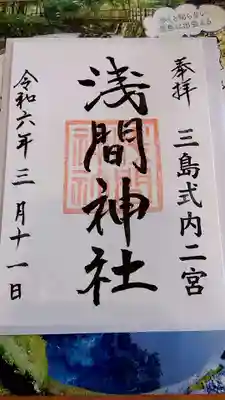 奉拝
三島式内二宮
浅間神社
令和六年三月十一日